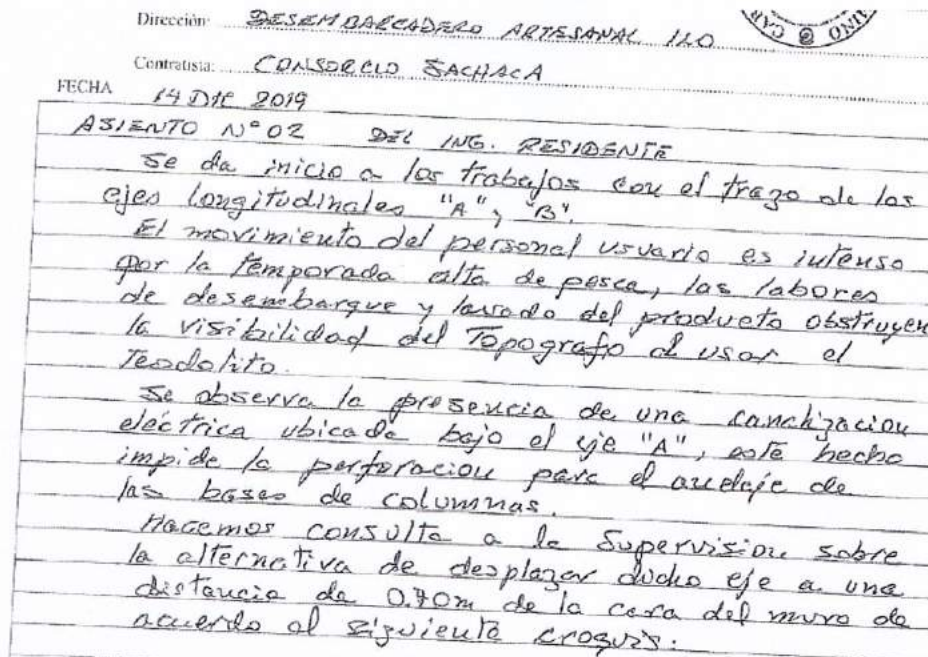 Dirección: DESEMBARCADERO ARTESANAL ILO
Contratista: CONSORCIO SACHACA
FECHA 14 DIC 2019
ASIENTO N° 02 DEL ING. RESIDENTE
Se da inicio a los trabajos con el trazo de los
ejes longitudinales "A", "B".
El movimiento del personal usuario es intenso
por la temporada alta de pesca, las labores
de desembarque y lavado del producto obstruyen
la visibilidad del Topografo al usar el
Teodolito.
Se observa la presencia de una canalizacion
eléctrica ubicada bajo el eje "A", este hecho
impide la perforacion para el anclaje de
las bases de columnas.
Hacemos consulta a la Supervision sobre
la alternativa de desplazar dicho eje a una
distancia de 0.70m de la cara del muro de
acuerdo al siguiente croquis: